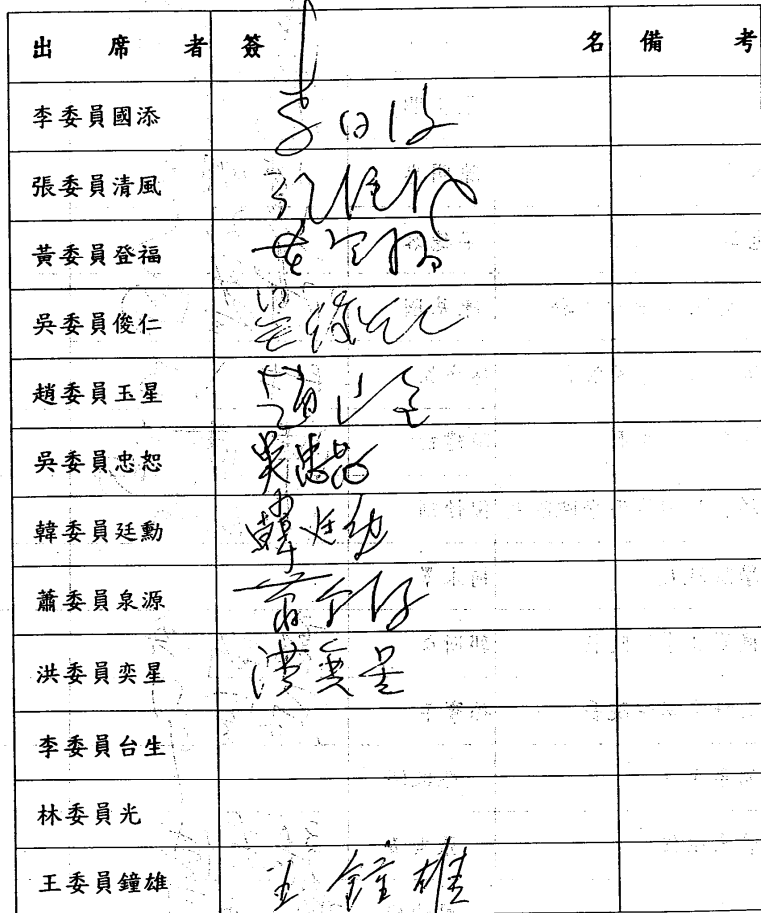 出席者 簽名 備考
李委員國添 李国添
張委員清風
黃委員登福 黃登福
吳委員俊仁 吳俊仁
趙委員玉星 趙玉星
吳委員忠恕 吳忠恕
韓委員廷勳 韓廷勳
蕭委員泉源 蕭泉源
洪委員奕星 洪奕星
李委員台生
林委員光
王委員鐘雄 王鐘雄